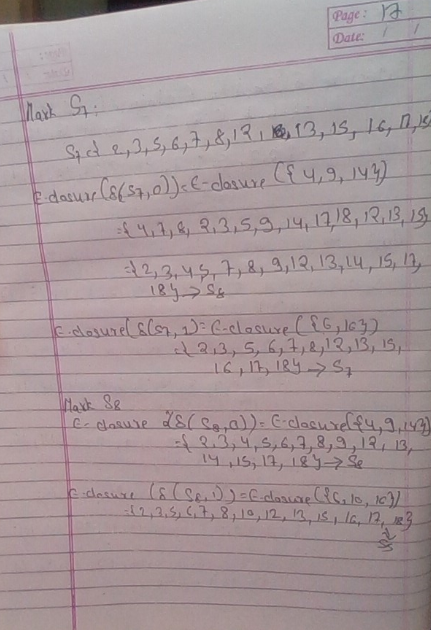 Page: 17
Date: / /
Mark S7:
S7 = { 2, 3, 5, 6, 7, 8, 12, 13, 15, 16, 17, 18
ε-closure (δ(S7, 0)) = ε-closure ({4, 9, 14})
= {4, 7, 8, 2, 3, 5, 9, 14, 17, 18, 12, 13, 15}
= {2, 3, 4, 5, 7, 8, 9, 12, 13, 14, 15, 17,
18} → S8
ε-closure (δ(S7, 1) = ε-closure ({6, 16})
= { 2, 3, 5, 6, 7, 8, 12, 13, 15,
16, 17, 18} → S7
Mark S8
ε-closure {δ(S8, 0)) = ε-closure {4, 9, 14})
= { 2, 3, 4, 5, 6, 7, 8, 9, 12, 13,
14, 15, 17, 18} → S8
ε-closure (δ(S8, 1)) = ε-closure ({6, 10, 16})
= {2, 3, 5, 6, 7, 8, 10, 12, 13, 15, 16, 17, 18}